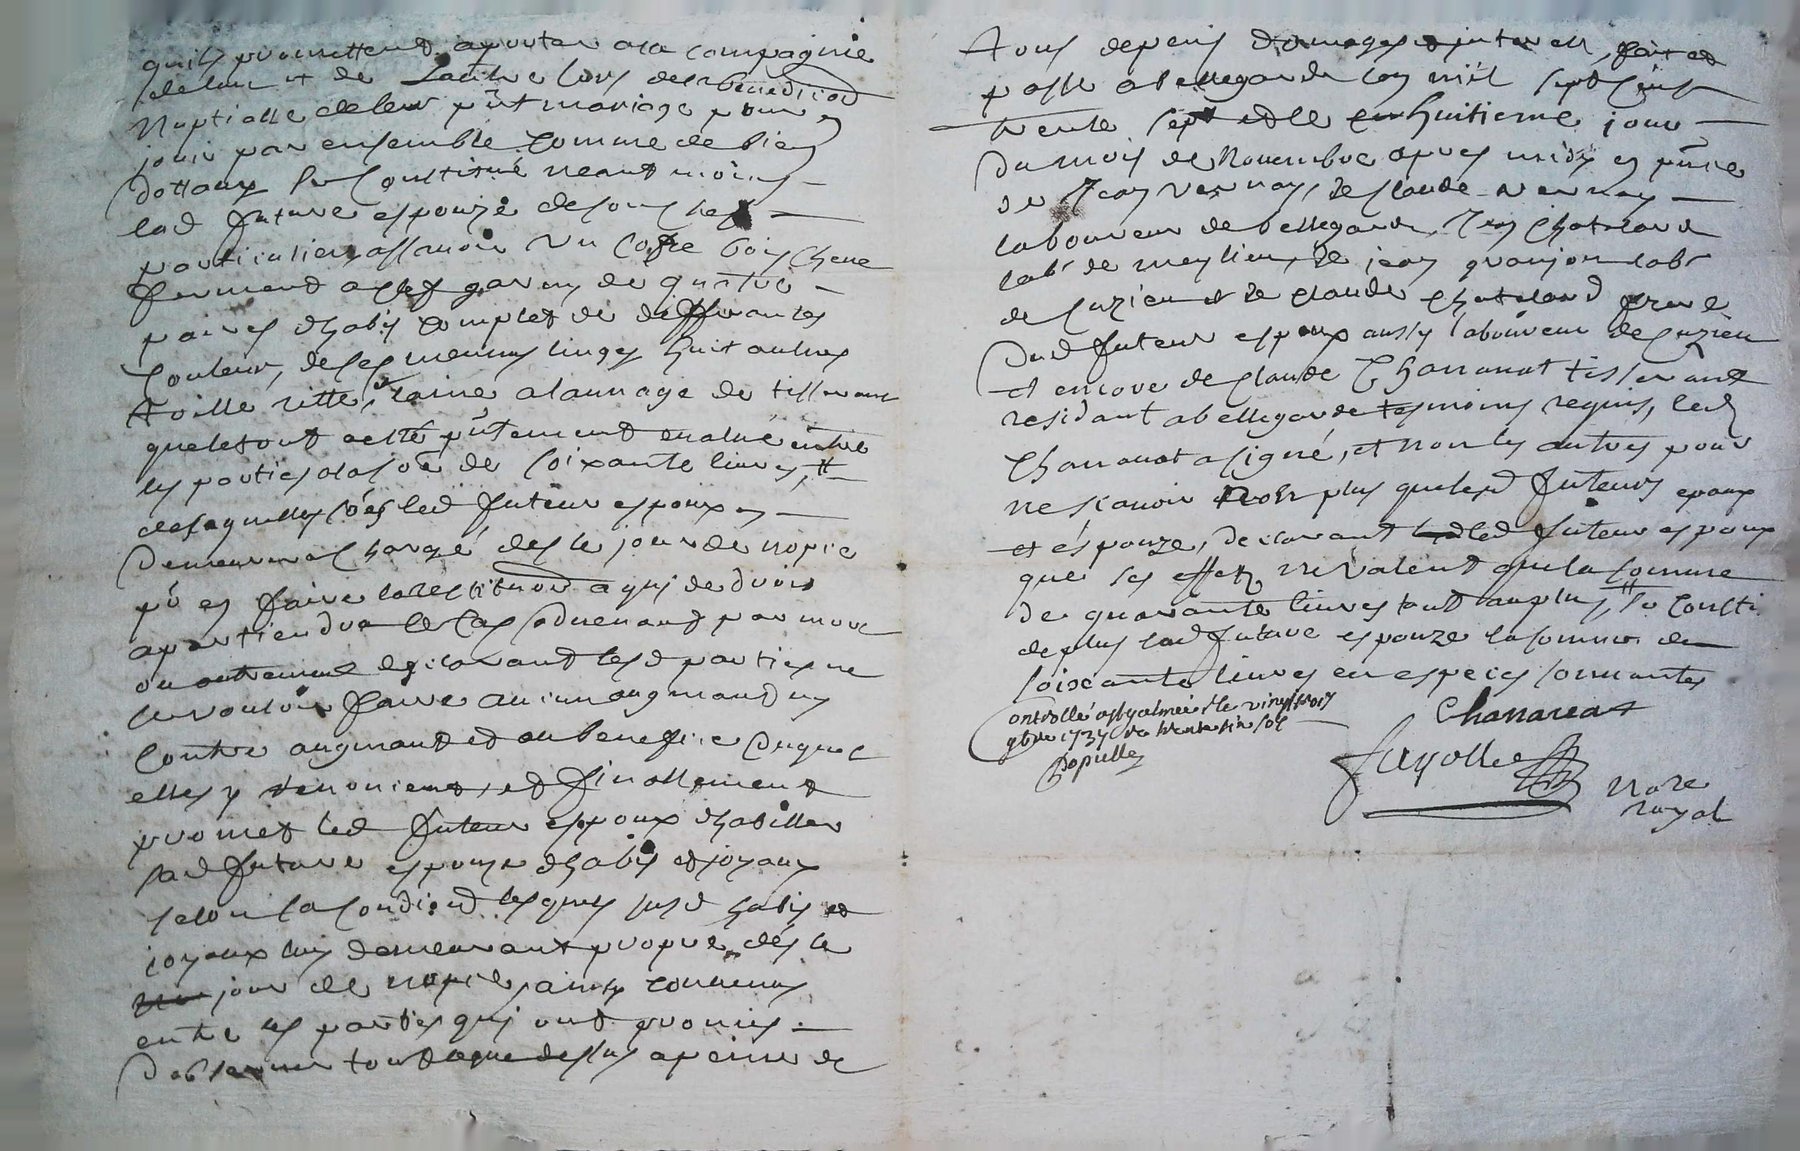 quils promettent aporter a la compagnie
de lun et de lautre lors de la benediction
Nuptialle de leur pñt mariage pour
jouir par ensemble comme de bien
dottaux se constitue neant moins
lad future espouze de sous chef
particulier assauoir un coffre bois chene
fermant a clef garny de quatre
paires dhabis complet de differantes
couleurs, de ses menus linges huit aulnes
toille ritte a laulnage de tisserant
que le tout a esté pñtement evalué entre
les parties a la soê de soixante liures,
desquelles led futeur espoux
demeurera chargé des le jour de nopce
pr en faire la restitution a qui de droit
apartiendra le cas aduenant par mort
ou autrement declarant lesd parties ne
se vouloir faire aucun augmand ny
contre augmand et au benefice duquel
elles y renoncent, et finallement
promet led futeur espoux dhabiller
sad future espouze dhabis et joyaux
selon sa condiõn lesquels susd habis et
joyaux luy demeurant propre dés le
jour de nopce, ainsy conuenus
entre les parties qui ont promis
dobseruer tout ce que dessus a peine de
tous depens domages et interest, fait et
passé a bellegarde lan mil sept cent
trente sept et le huitieme jour
du mois de Nouembre apres midy en pñce
de Jean vernay, de Claude vernay
laboureur de bellegarde, Jean Chatelard
labr de meylieu, de jean granjon labr
de Cuzieu et de claude chatelard frere
dud futeur espoux aussy laboureur de Cuzieu
et encore de claude Chananat tisserant
residant a bellegarde tesmoins requis, led
Chananat a signé, et non les autres pour
ne scauoir non plus que lesd futeurs epoux
et épouze, declarant led futeur espoux
que ses effets ne valent que la somme
de quarante liures tout au plus, se consti
de plus lad future espouze la somme de
soixante liures en especes sonnantes
ontrollé a st galmier le vingt
9bre 1737 trente six sols
Chananat
Fayolle
Nore
royal